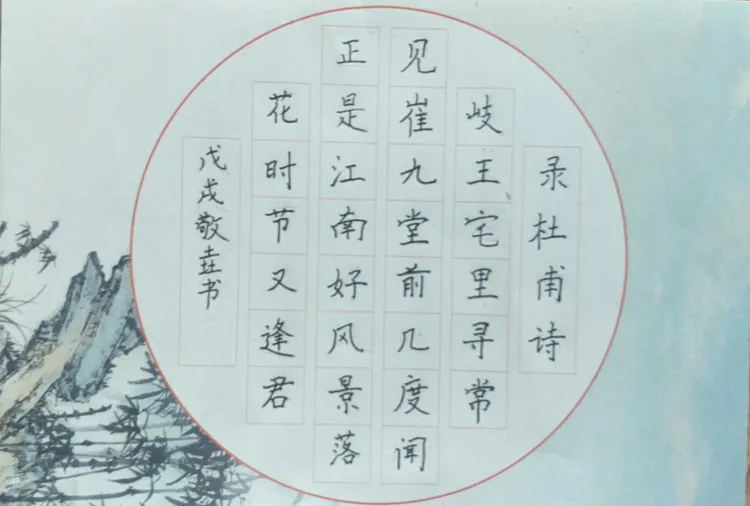 录杜甫诗
岐王宅里寻常
见崔九堂前几度闻
正是江南好风景落
花时节又逢君
戊戌敬垚书